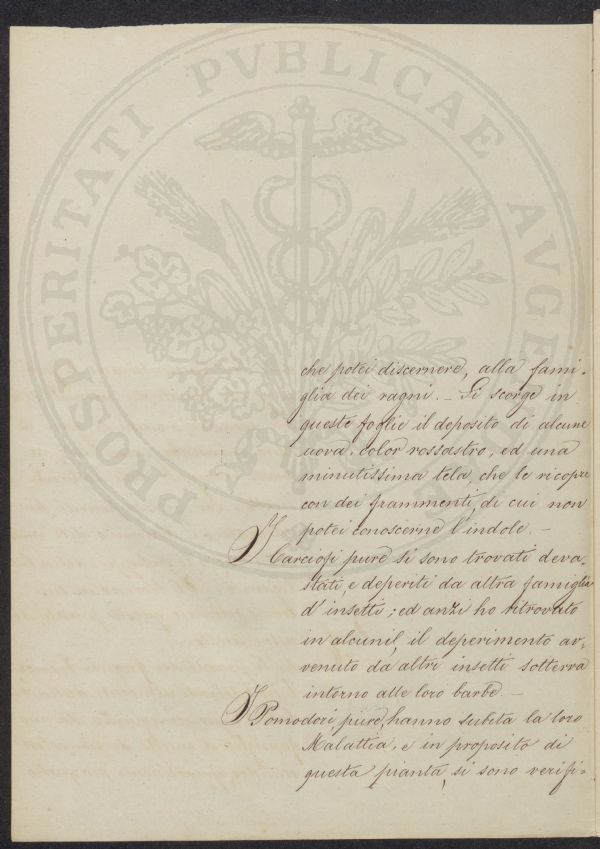 PROSPERITATI PVBLICAE AVGE
che potei discernere, alla fami-
glia dei ragni. - Si scorge in
queste foglie il deposito di alcune
uova, color rossastro, ed una
minutissima tela, che le ricopre
con dei frammenti, di cui non
potei conoscerne l'indole. -
I Carciofi pure si sono trovati deva-
stati, e deperiti da altra famiglia
d'insetti; ed anzi ho ritrovato
in alcuni, il deperimento av-
venuto da altri insetti sotterra
intorno alle loro barbe. -
I Pomodori pure, hanno subita la loro
Malattia, e in proposito di
questa pianta, si sono verifi-